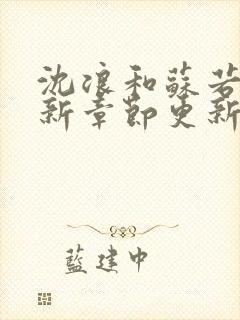 沈浪和蘇若
新章節更新
藍建中